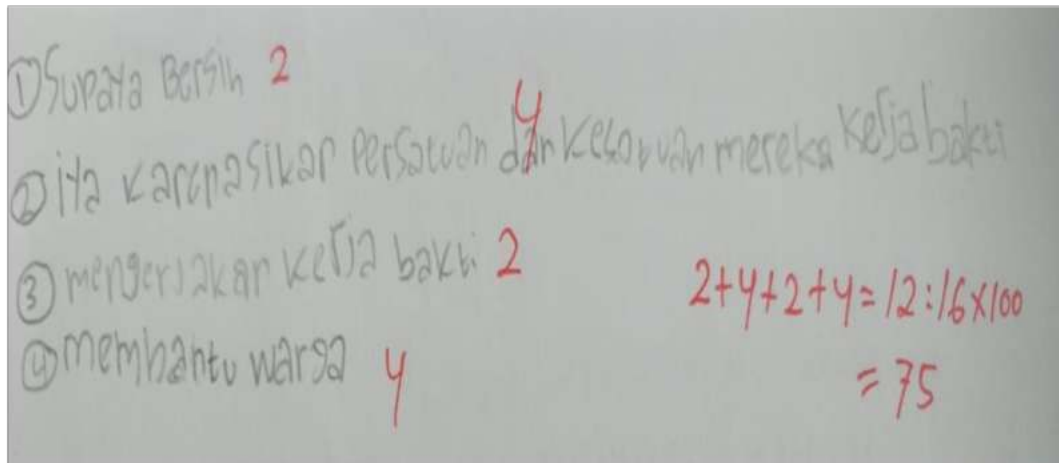 ① Supaya Bersih 2
② ita karenasikap Persatuan dan kesatuan mereka kerja bakti 4
③ mengerjakan kerja bakti 2
④ membantu warga 4
2+4+2+4=12:16x100
=75